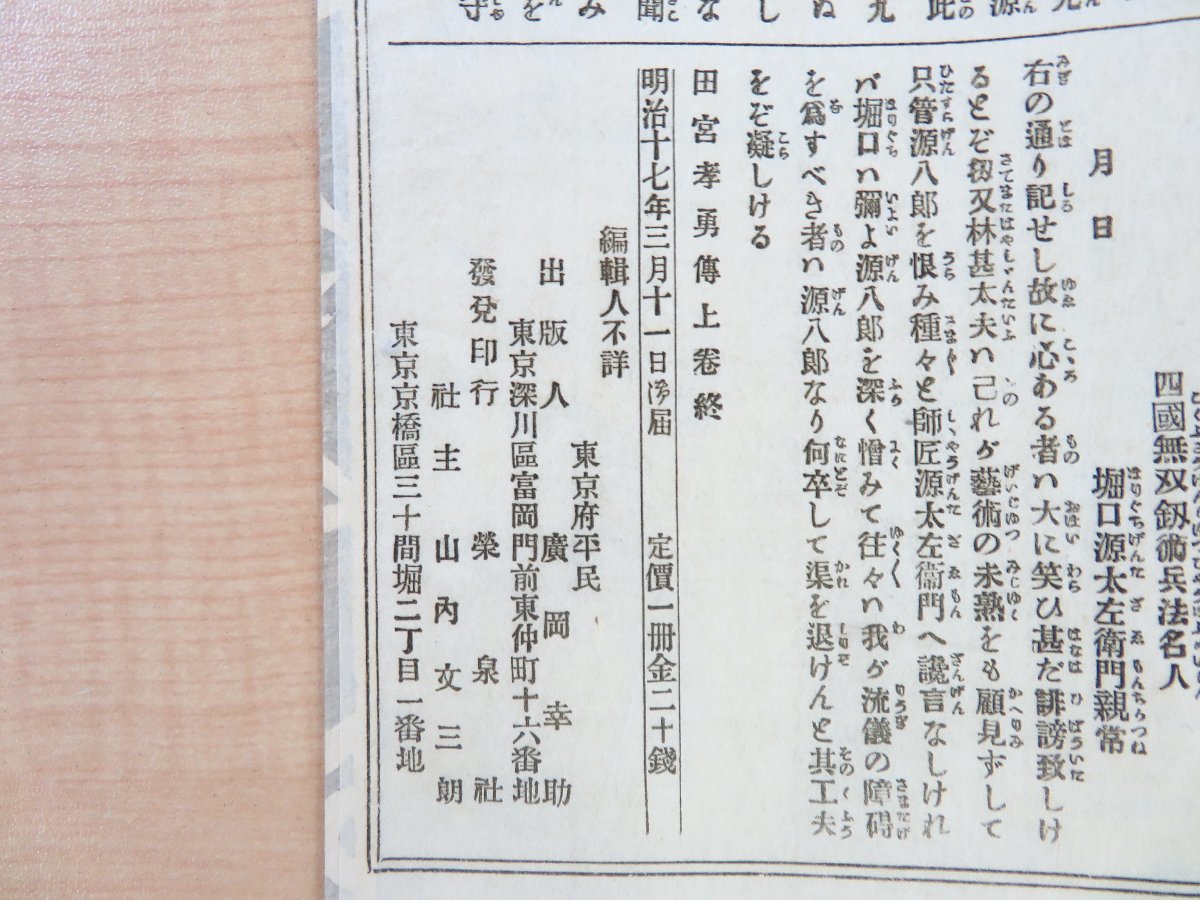 四國無双釼術兵法名人
堀口源太左衛門親常
月日
右の通り記せし故に心ある者ハ大に笑ひ甚だ誹謗致しけ
るとぞ扨又林甚太夫ハ己れガ藝術の未熟をも顧見ずして
只管源八郎を恨み種々と師匠源太左衞門へ讒言なしけれ
バ堀口ハ彌よ源八郎を深く憎みて往々ハ我ガ流儀の障碍
を爲すべき者ハ源八郎なり何卒して渠を退けんと其工夫
をぞ凝しける
田宮孝勇傳上卷終
明治十七年三月十一日御届　定價一册金二十錢
編輯人不詳
東京府平民
出版人　廣岡幸助
東京深川區富岡門前東仲町十六番地
發兌印行　榮泉社
社主　山內文三朗
東京京橋區三十間堀二丁目一番地